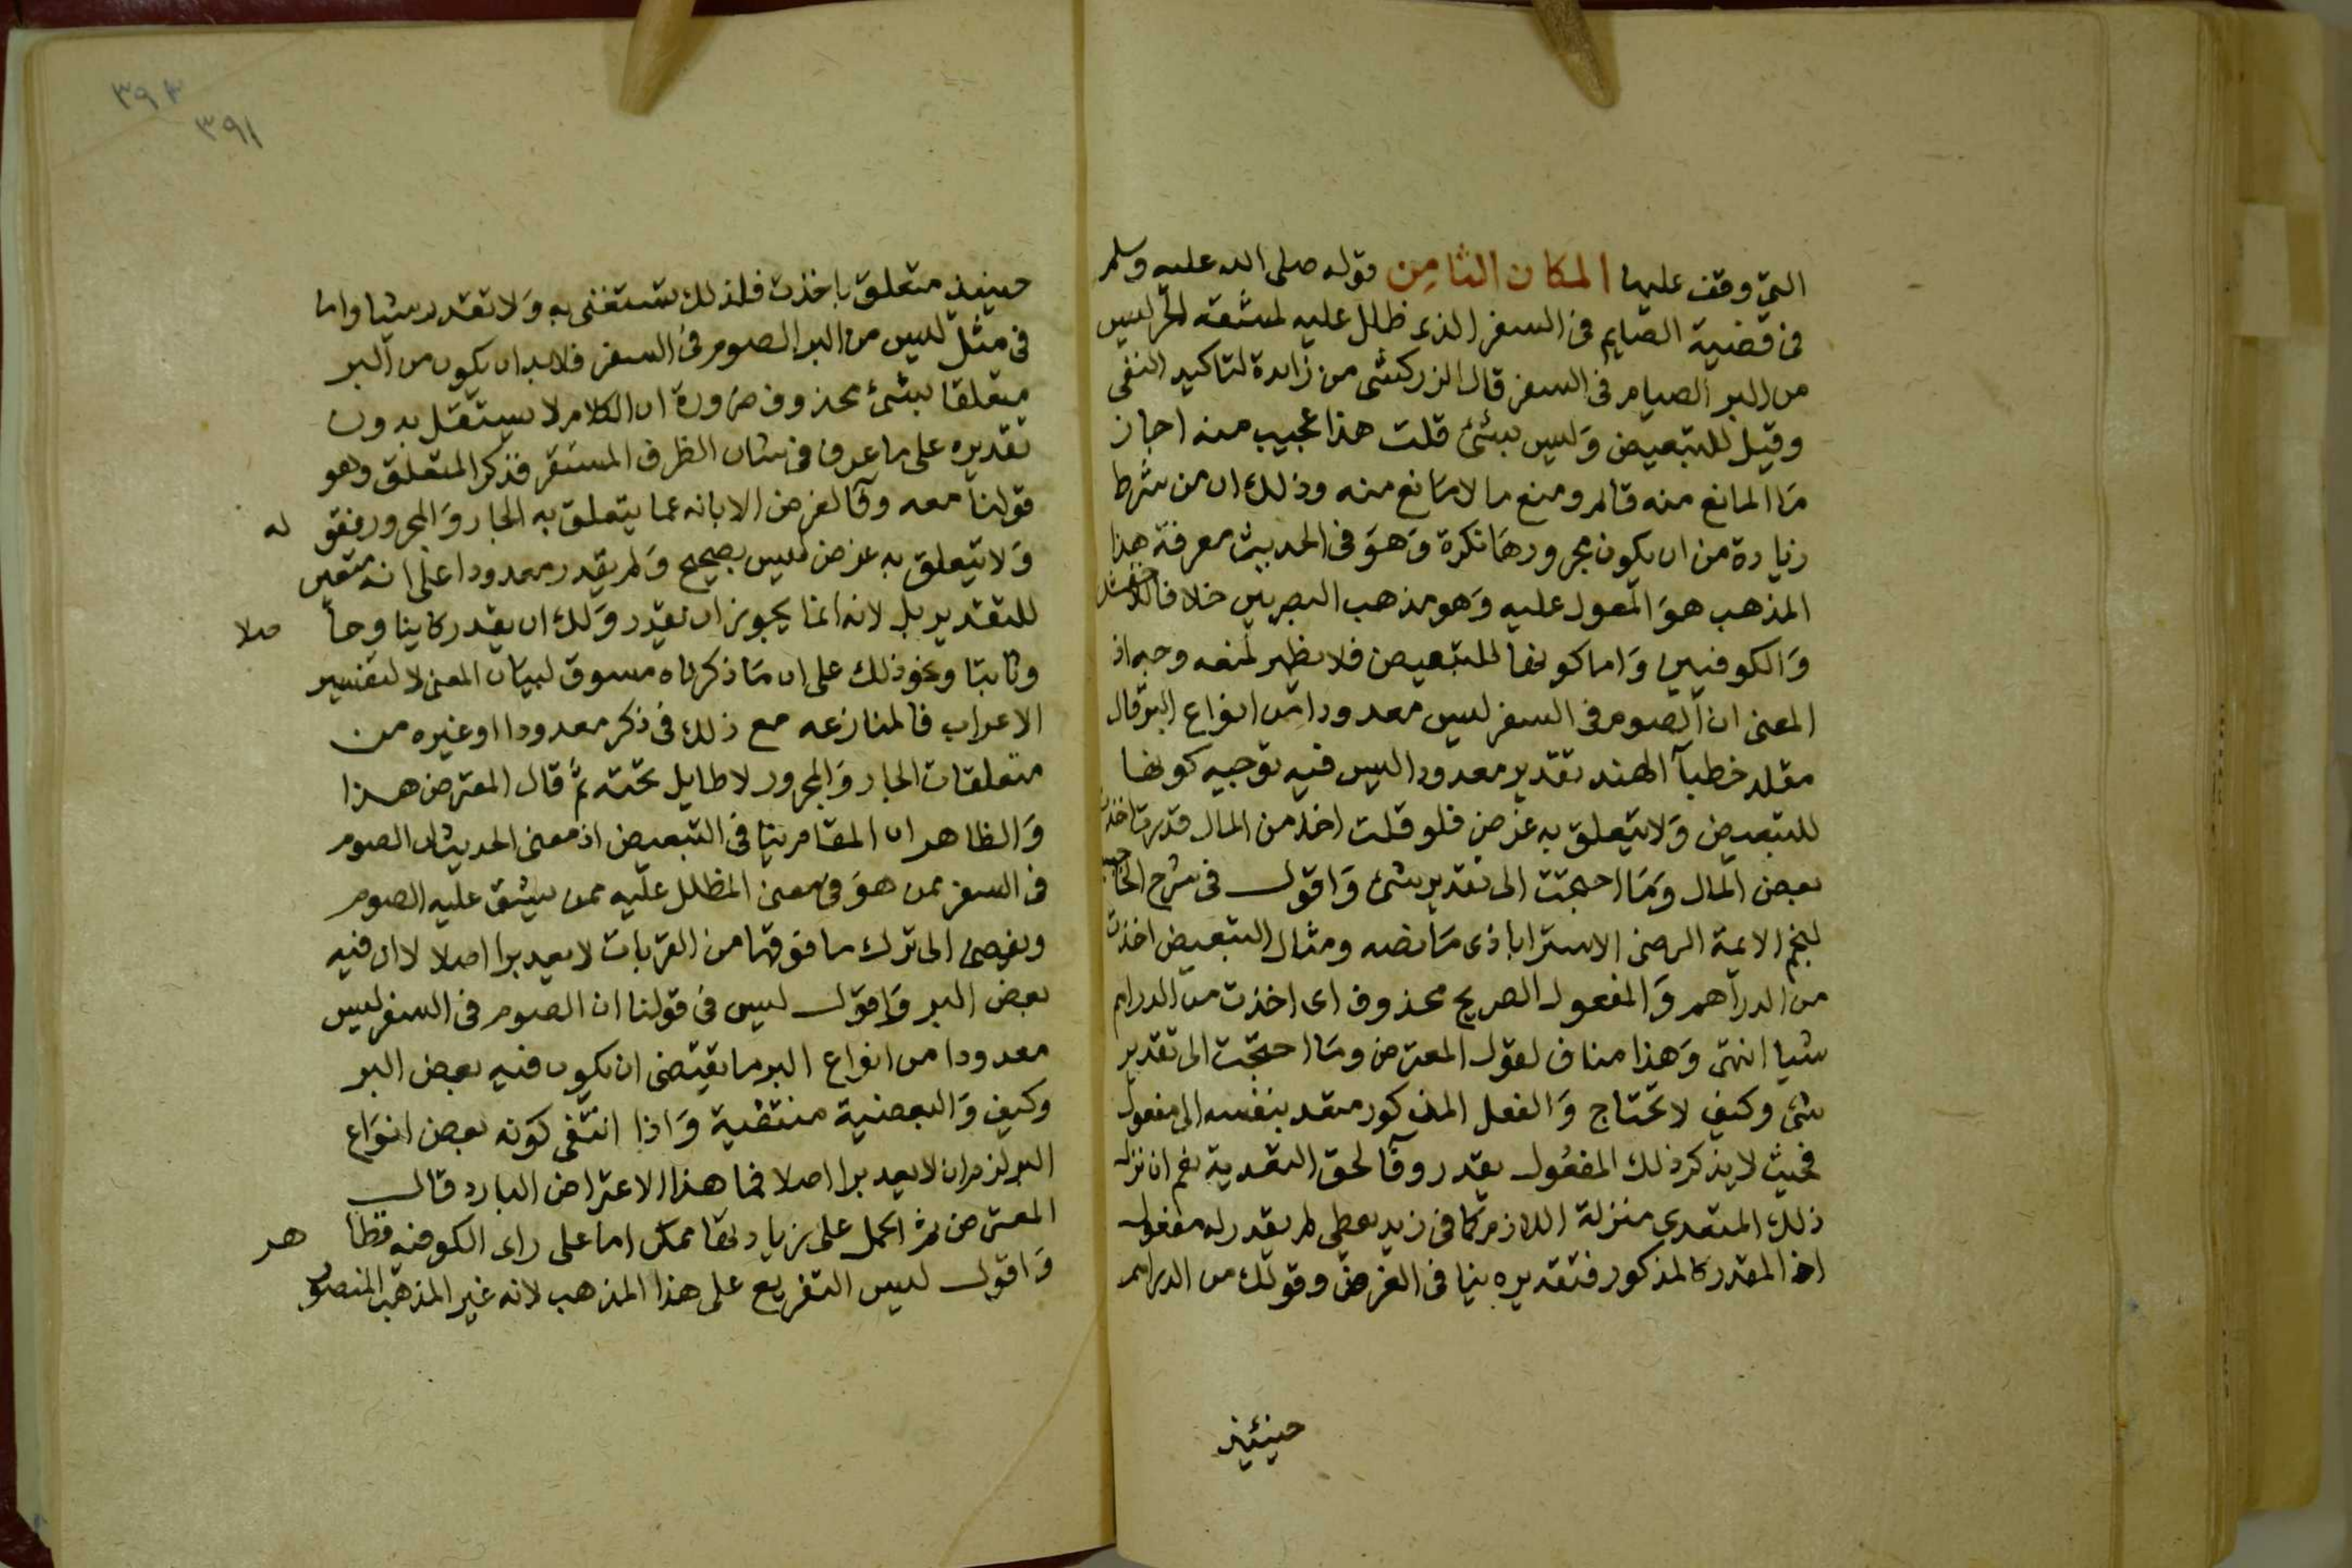 التي وقف عليها المكان الثامن قوله صلى الله عليه وسلم
في قضية الصايم في السفر الذي ظلل عليه لمشقة الحر ليس
من البر الصيام في السفر قال الزركشي من زايدة لتاكيد النفي
وقيل للتبعيض وليس بشئ قلت هذا عجيب منه اجاز
ما المانع منه قائم ومنع ما لا مانع منه وذلك ان من شرط
زيادة من ان يكون مجرورها نكرة وهو في الحديث معرفة هذا
المذهب هو المعول عليه وهو مذهب البصريين خلافا للاخفش
والكوفيين واما كونها للتبعيض فلا يظهر لمنعه وجه اذ
المعنى ان الصوم في السفر ليس معدودا من انواع البر قال
مقلد خطبآ الهند تقدير معدودا ليس فيه توجيه كونها
للتبعيض ولا يتعلق به غرض فلو قلت اخذ من المال قدرت اخذت
بعض المال وما احتجت الى تقدير شئ واقول في شرح الحاجبية
لنجم الايمة الرضي الاستراباذي ما نصه ومثال التبعيض اخذت
من الدراهم والمفعول الصريح محذوف اى اخذت من الدراهم
شيا انتهى وهذا مناف لقول المعترض وما احتجت الى تقدير
شئ وكيف لا تحتاج والفعل المذكور متعد بنفسه الى مفعول
فحيث لا يذكر ذلك المفعول يقدر وفآ لحق التعدية نعم ان نزل
ذلك المتعدي منزلة اللازم كما في زيد يعطي لم يقدر له مفعول
اذ المقدر كالمذكور فتقديره ينافي الغرض وقولك من الدراهم
حينئيذ
٣٩٣
٣٩١
حينيذ متعلق باخذت فلذلك تستغنى به ولا تقدر شيا واما
في مثل ليس من البر الصوم في السفر فلابد ان يكون من البر
متعلقا بشئ محذوف ضرورة ان الكلام لا يستقل بدون
تقديره على ما عرف في شان الظرف المستقر فذكر المتعلق وهو
قولنا معدوآ لغرض الابانه عما يتعلق به الجار والمجرور فقو له
ولا يتعلق به غرض ليس بصحيح ولم يقدر معدودا على انه متعين
للتقدير بل لانه انما يجوز ان تقدر ولك ان تقدر كاينا وحا صلا
وثابتا ونحو ذلك على ان ما ذكرناه مسوق لبيان المعنى لا لتفسير
الاعراب فالمنازعه مع ذلك في ذكر معدودا او غيره من
متعلقات الجار والمجرور لا طايل تحته ثم قال المعترض هذا
والظاهر ان المقام ينافي التبعيض اذ معنى الحديث ان الصوم
في السفر ممن هو في معنى المظلل عليه ممن يشق عليه الصوم
ويفضى الى ترك ما فوقها من القربات لا يعد برا اصلا لا ان فيه
بعض البر واقول ليس في قولنا ان الصوم في السفر ليس
معدودا من انواع البر ما يقتضى ان يكون فيه بعض البر
وكيف والبعضية منتفية واذا انتفى كونه بعض انواع
البر لزم ان لا يعد برا اصلا فما هذا الاعتراض البارد قال
المعترض ثم الحمل على زيادتها ممكن اما على راى الكوفيه فظا هر
واقول ليس التفريع على هذا المذهب لانه غير المذهب المنصور